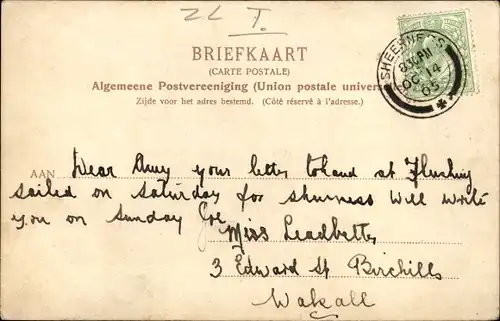 ZL T.
BRIEFKAART
(CARTE POSTALE)
Algemeene Postvereeniging (Union postale univers
Zijde voor het adres bestemd. (Côté réservé à l'adresse.)
SHEERNESS
OC 14
05
AAN Dear Amy your letter tohand at Flushing
sailed on Saturday for Sheerness Will write
you on Sunday Joe
Miss Leadbetter
3 Edward St Birchills
Walsall